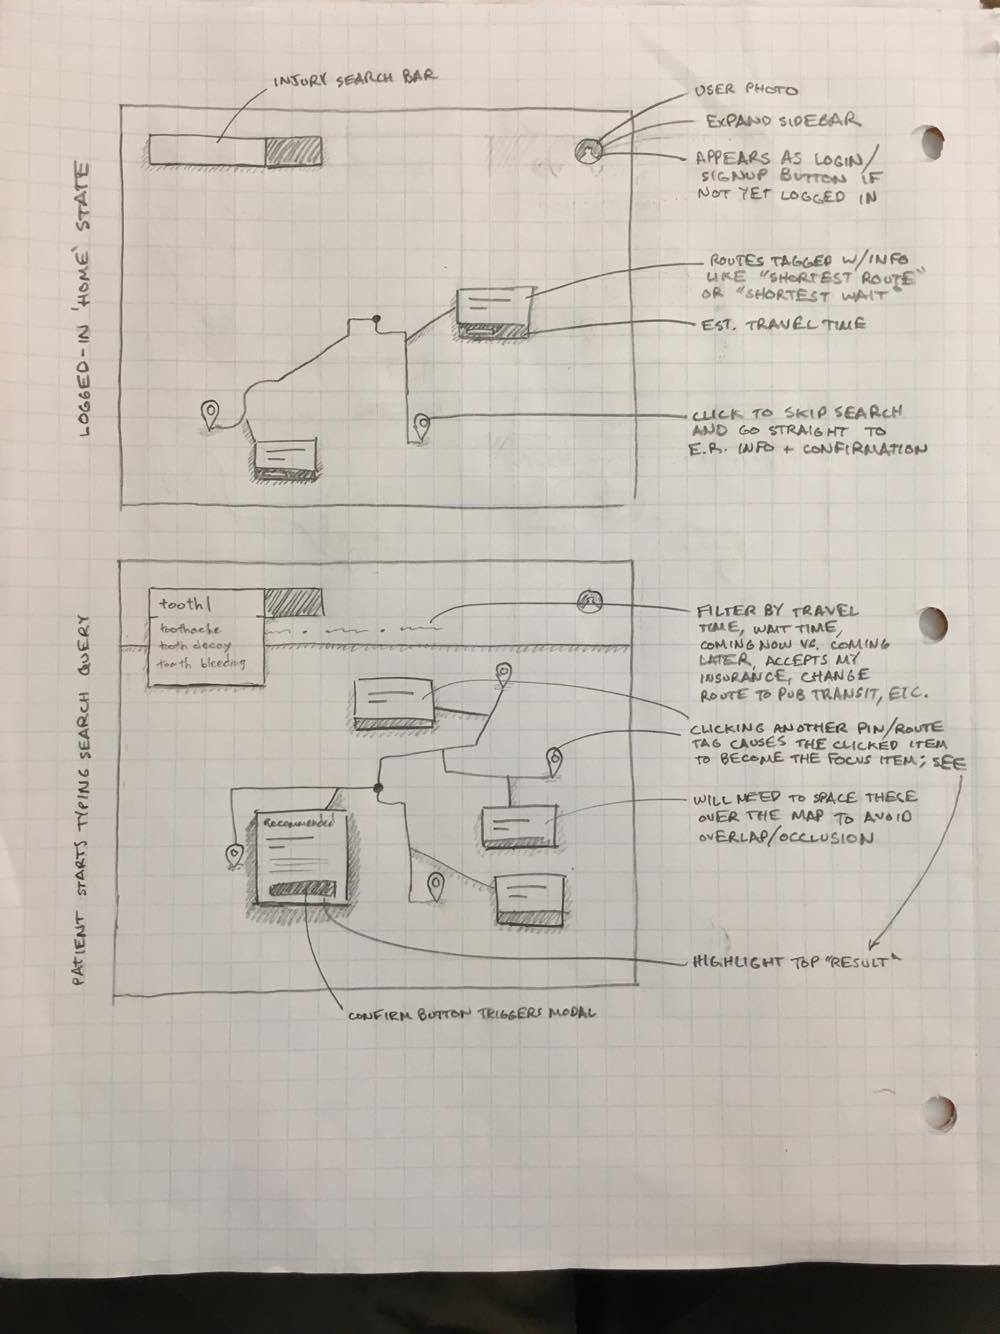 INJURY SEARCH BAR
USER PHOTO
EXPAND SIDEBAR
APPEARS AS LOGIN/
SIGNUP BUTTON IF
NOT YET LOGGED IN
LOGGED-IN 'HOME' STATE
ROUTES TAGGED W/INFO
LIKE "SHORTEST ROUTE"
OR "SHORTEST WAIT"
EST. TRAVEL TIME
CLICK TO SKIP SEARCH
AND GO STRAIGHT TO
E.R. INFO + CONFIRMATION
PATIENT STARTS TYPING SEARCH QUERY
tooth|
toothache
tooth decay
tooth bleeding
FILTER BY TRAVEL
TIME, WAIT TIME,
COMING NOW VS. COMING
LATER, ACCEPTS MY
INSURANCE, CHANGE
ROUTE TO PUB TRANSIT, ETC.
CLICKING ANOTHER PIN/ROUTE
TAG CAUSES THE CLICKED ITEM
TO BECOME THE FOCUS ITEM; SEE
WILL NEED TO SPACE THESE
OVER THE MAP TO AVOID
OVERLAP/OCCLUSION
Recommended
HIGHLIGHT TOP "RESULT"
CONFIRM BUTTON TRIGGERS MODAL